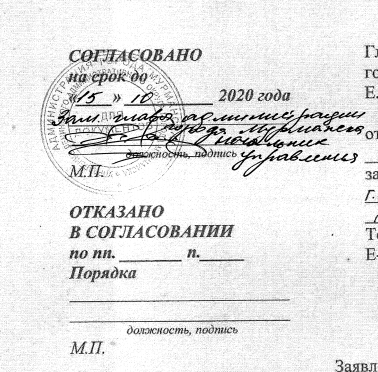 СОГЛАСОВАНО
на срок до
«15» 10 2020 года
Зам. главы администрации
города Мурманска
начальник
управления
должность, подпись
М.П.
ОТКАЗАНО
В СОГЛАСОВАНИИ
по пп. ________ п. ______
Порядка
должность, подпись
М.П.
Гл
го
Е.
от
за
г.
Те
E-
Заявл
АДМИНИСТРАЦИЯ ГОРОДА МУРМАНСКА
ДЛЯ
ДОКУМЕНТОВ